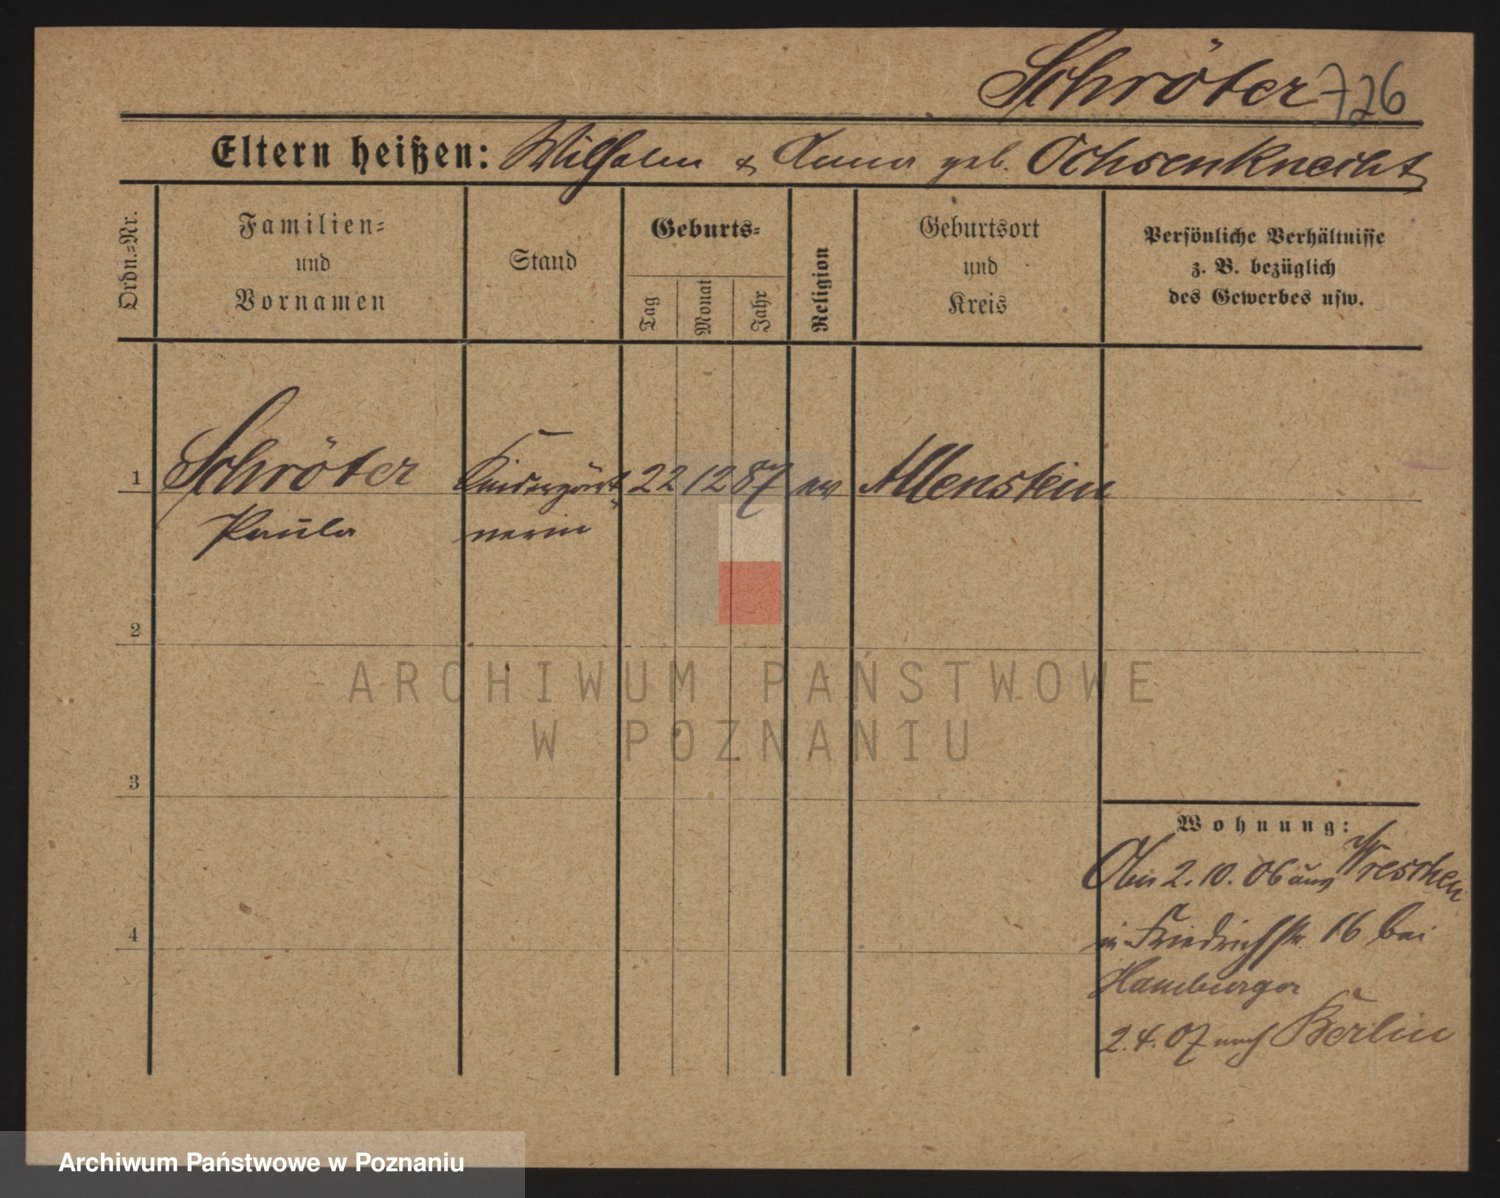 Schröter 726
Eltern heißen: Wilhelm & Anna geb. Ochsenknecht
Ordn.=Nr.
Familien=
und
Vornamen
Stand
Geburts=
Tag
Monat
Jahr
Religion
Geburtsort
und
Kreis
Persönliche Verhältnisse
z. B. bezüglich
des Gewerbes usw.
1 Schröter Kindergärt 22 12 87 ev Allenstein
Paula nerin
2
ARCHIWUM PAŃSTWOWE
W POZNANIU
3
Wohnung:
2. 10. 06 aus Wreschen
4
in Friedrichstr. 16 bei
Hamburger
2. 4. 07 nach Berlin
Archiwum Państwowe w Poznaniu